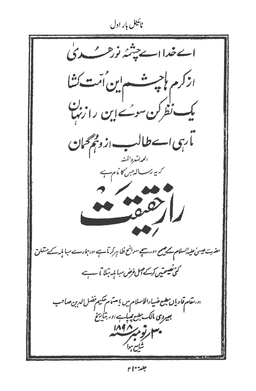 ٹائٹل بار اول
اے خدا اے چشمۂ نور ھدیٰ
از کرم ہا چشم این اُمّت کشا
یک نظر کن سوے این راز نہان
تا رہی اے طالب از وہم و گمان
الحمد للہ و المنہ
کہ یہ رسالہ جس کا نام ہے
راز حقیقت
حضرت عیسیٰ علیہ السلام کے صحیح اور سچے سوانح ظاہر کرتا ہے اور ہمارے مباہلہ کے متعلق
کئی نصیحتیں کر کے اصل غرض مباہلہ بتلاتا ہے
اور بمقام قادیاں مطبع ضیاء الاسلام میں باہتمام حکیم فضل الدین صاحب
بھیروی مالک مطبع چھپا ہے اور بتاریخ
۳۰ نومبر ۱۸۹۸
شایع ہوا
جلد